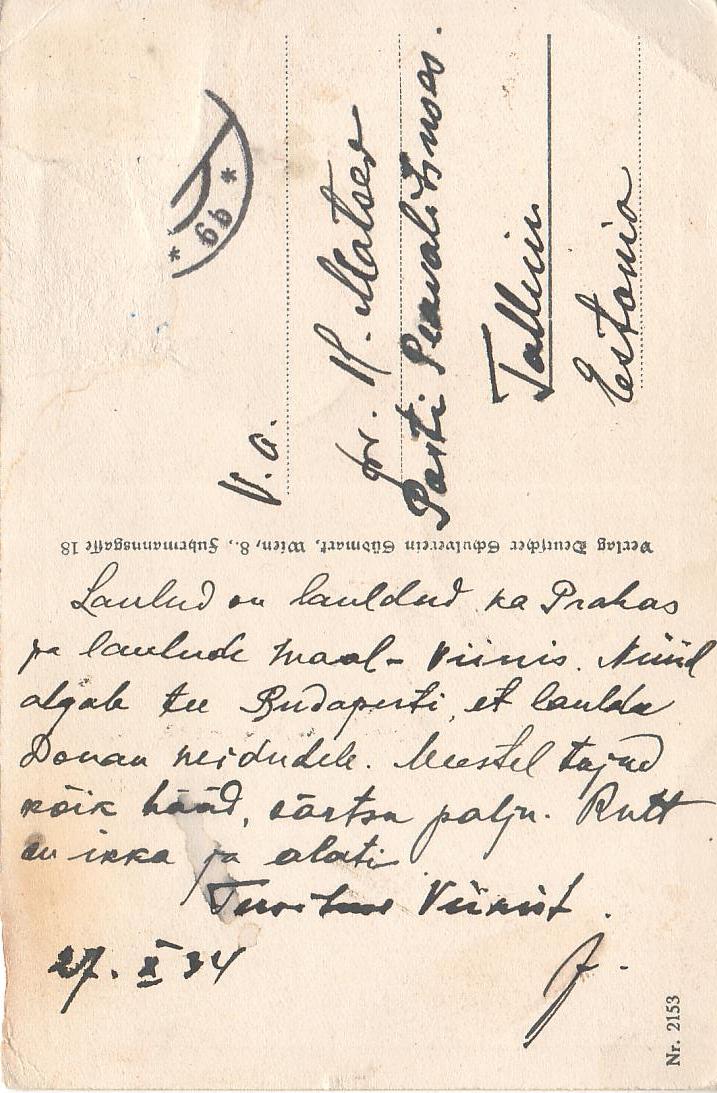 V. a.
pr. R. Matser
Posti Peavalitsuses.
Tallinn
Estonia
Verlag Deutscher Schulverein Südmark, Wien, 8., Fuhrmannsgasse 18
Laulud on lauldud ka Prahas
ja laulude maal - Viinis. Nüüd
algab tee Budapesti, et laulda
Donau neidudele. Meestel tujud
kõik hääd, särtsu palju. Rutt
on ikka ja alati
Tervitus Viinist.
27. X 34
J.
Nr. 2153
* 69 *